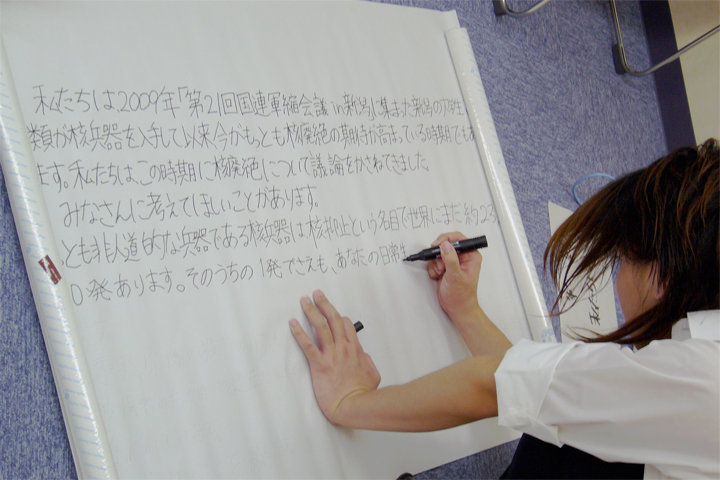 私たちは2009年「第21回国連軍縮会議in新潟」に集まった新潟の
類が核兵器を入手して以来今がもっとも核廃絶の期待が高まっている時期でもあ
ます。私たちは、この時期に核廃絶について議論をかさねてきました。
みなさんに考えてほしいことがあります。
とも非人道的な兵器である核兵器は核抑止という名目で世界にまだ約23
0発あります。そのうちの1発でさえも、あなたの日常生